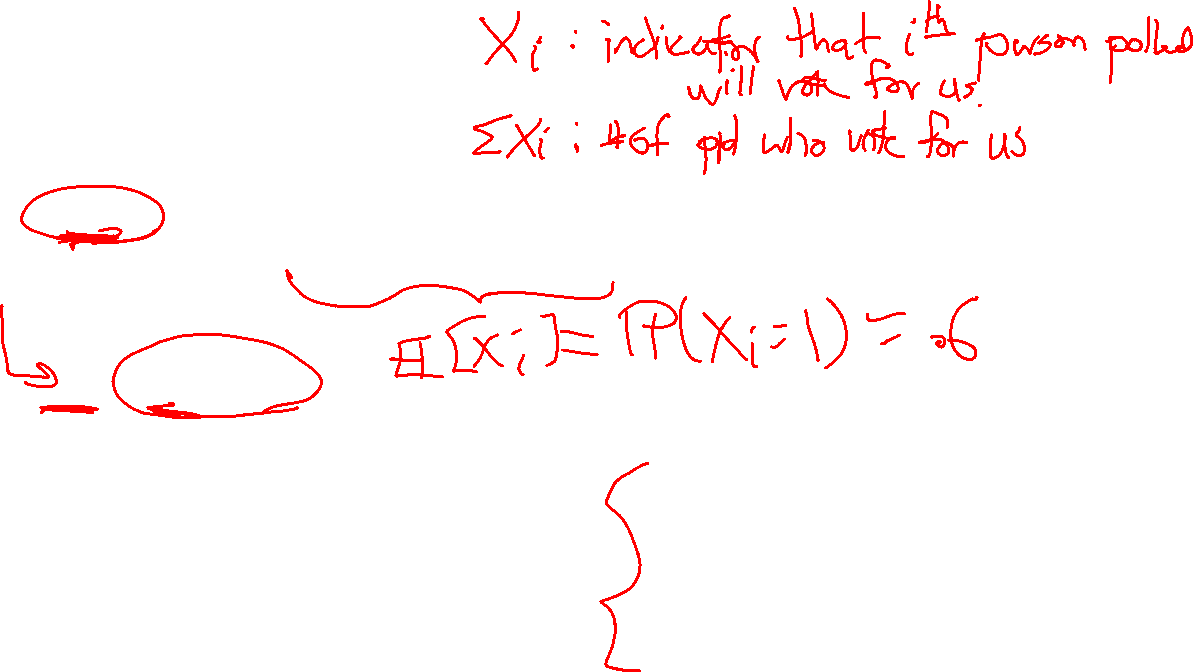 Xᵢ : indicator that iᵗʰ person polled
will vote for us.
ΣXᵢ : # of ppl who vote for us
𝔼[Xᵢ] = ℙ(Xᵢ = 1) = .6